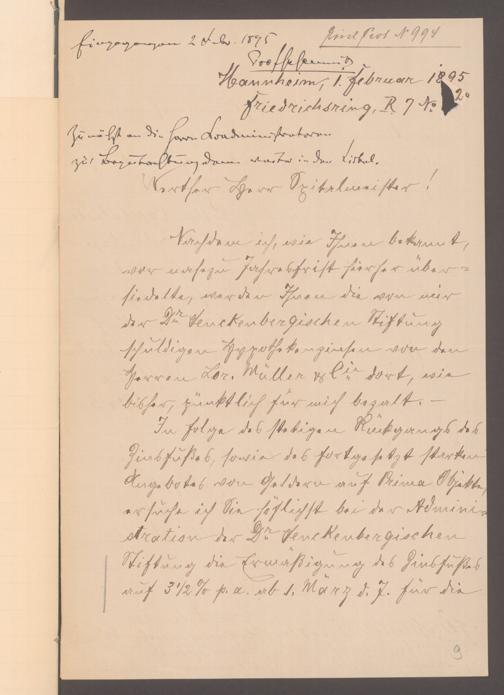 Eingegangen 2 Febr. 1895
Mannheim, 1. Februar 1895
Friedrichsring, R 7 No.
Zunächst an die Herrn Coadministratoren
zur Begutachtung, dann weiter in den Cirkel.
Werther Herr Spitalmeister!
Nachdem ich, wie Ihnen bekannt,
vor nahezu Jahresfrist hierher über-
siedelte, werden Ihnen die von mir
der Dr. Senckenbergischen Stiftung
schuldigen Hypothekenzinsen von den
Herren Lor. Müller & Cie dort, wie
bisher, pünktlich für mich bezalt. —
In folge des stetigen Rückgangs des
Zinsfußes, sowie des fortgesetzt starken
Angebotes von Geldern auf Prima Objekte,
ersuche ich Sie höflichst bei der Admini-
stration der Dr. Senckenbergischen
Stiftung die Ermäßigung des Zinsfußes
auf 3 1/2 % p. a. ab 1. März d. J. für die
9